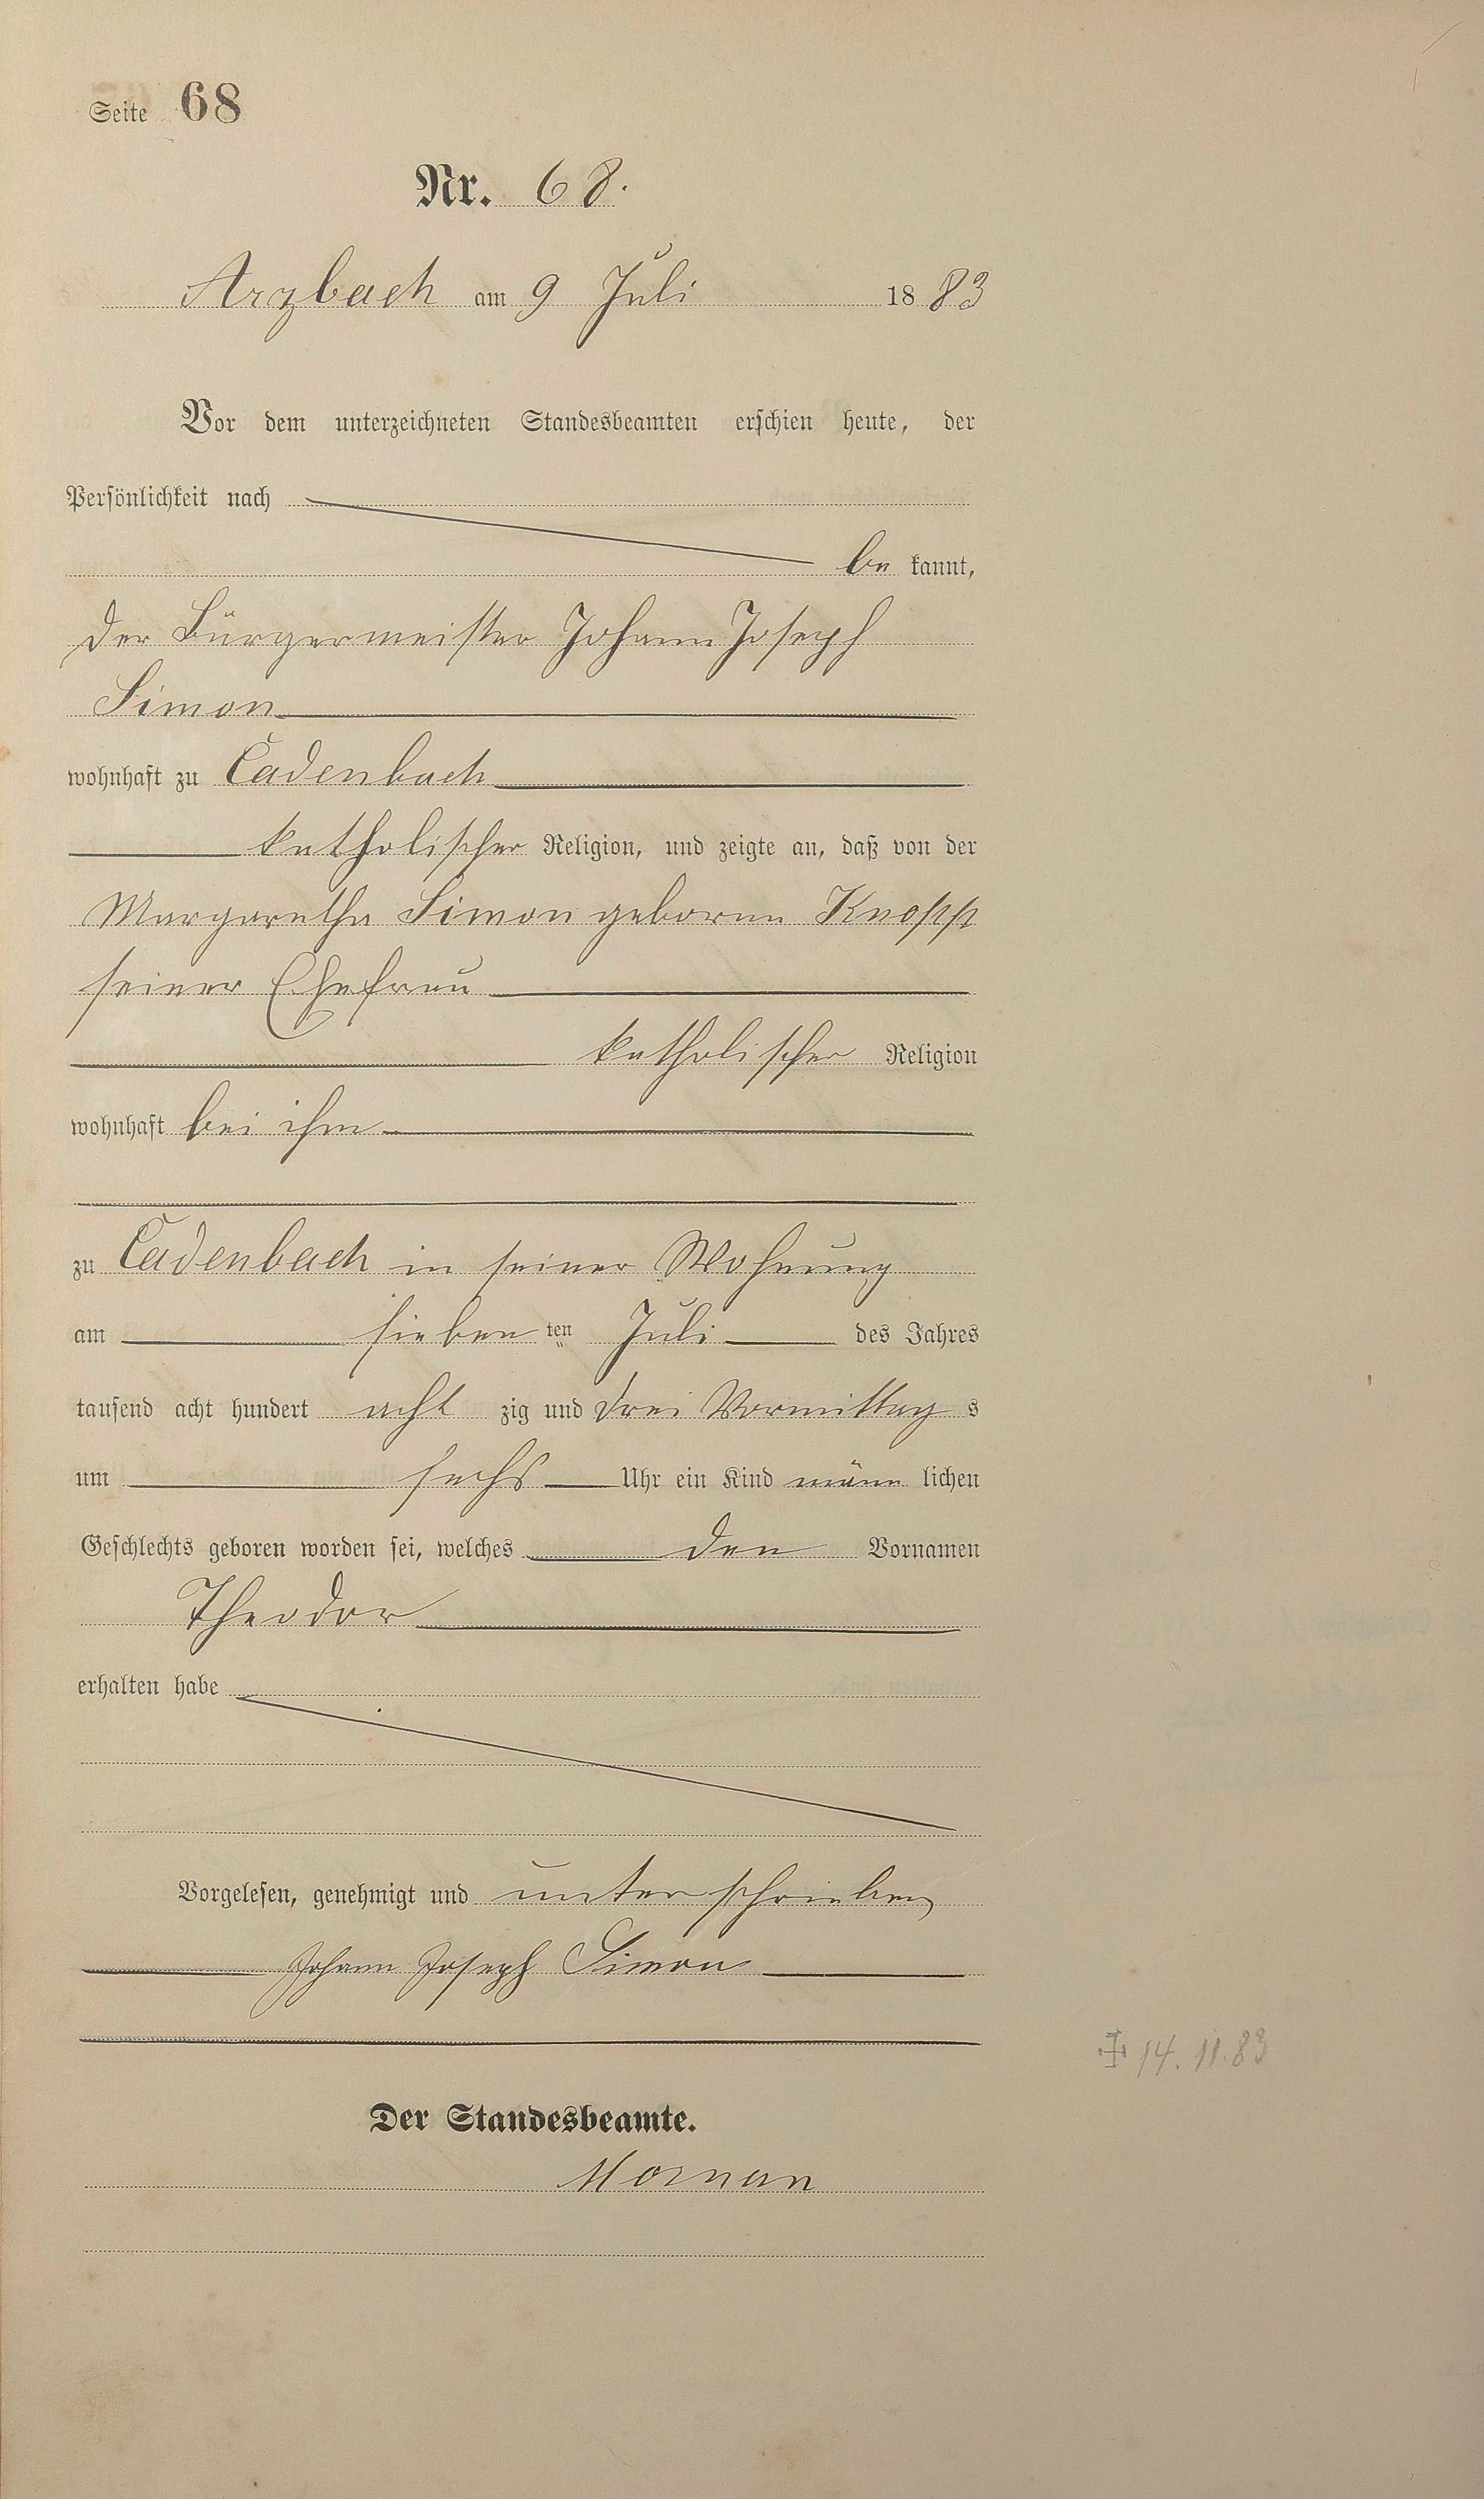 Seite 68
Nr. 68.
Arzbach am 9 Juli 1883
Vor dem unterzeichneten Standesbeamten erschien heute, der
Persönlichkeit nach
be kannt,
der Bürgermeister Johann Joseph
Simon
wohnhaft zu Cadenbach
katholischer Religion, und zeigte an, daß von der
Margaretha Simon geborene Knopp
seiner Ehefrau
katholischer Religion
wohnhaft bei ihm
zu Cadenbach in seiner Wohnung
am sieben ten Juli des Jahres
tausend acht hundert acht zig und drei Vormittag s
um sechs Uhr ein Kind männ lichen
Geschlechts geboren worden sei, welches den Vornamen
Theodor
erhalten habe
Vorgelesen, genehmigt und unterschrieben
Johann Joseph Simon
✠ 14. 11. 83
Der Standesbeamte.